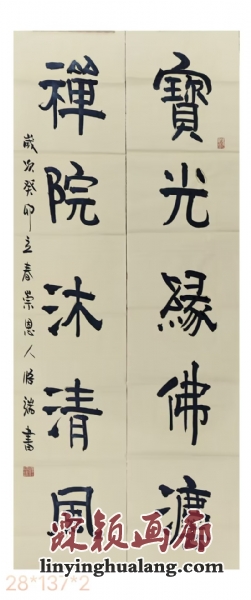 寶光緣佛
禪院沐清風
歲次癸卯立春崇恩人瑞書
霖颖画廊
www.linyinghualang.com
28*137*2